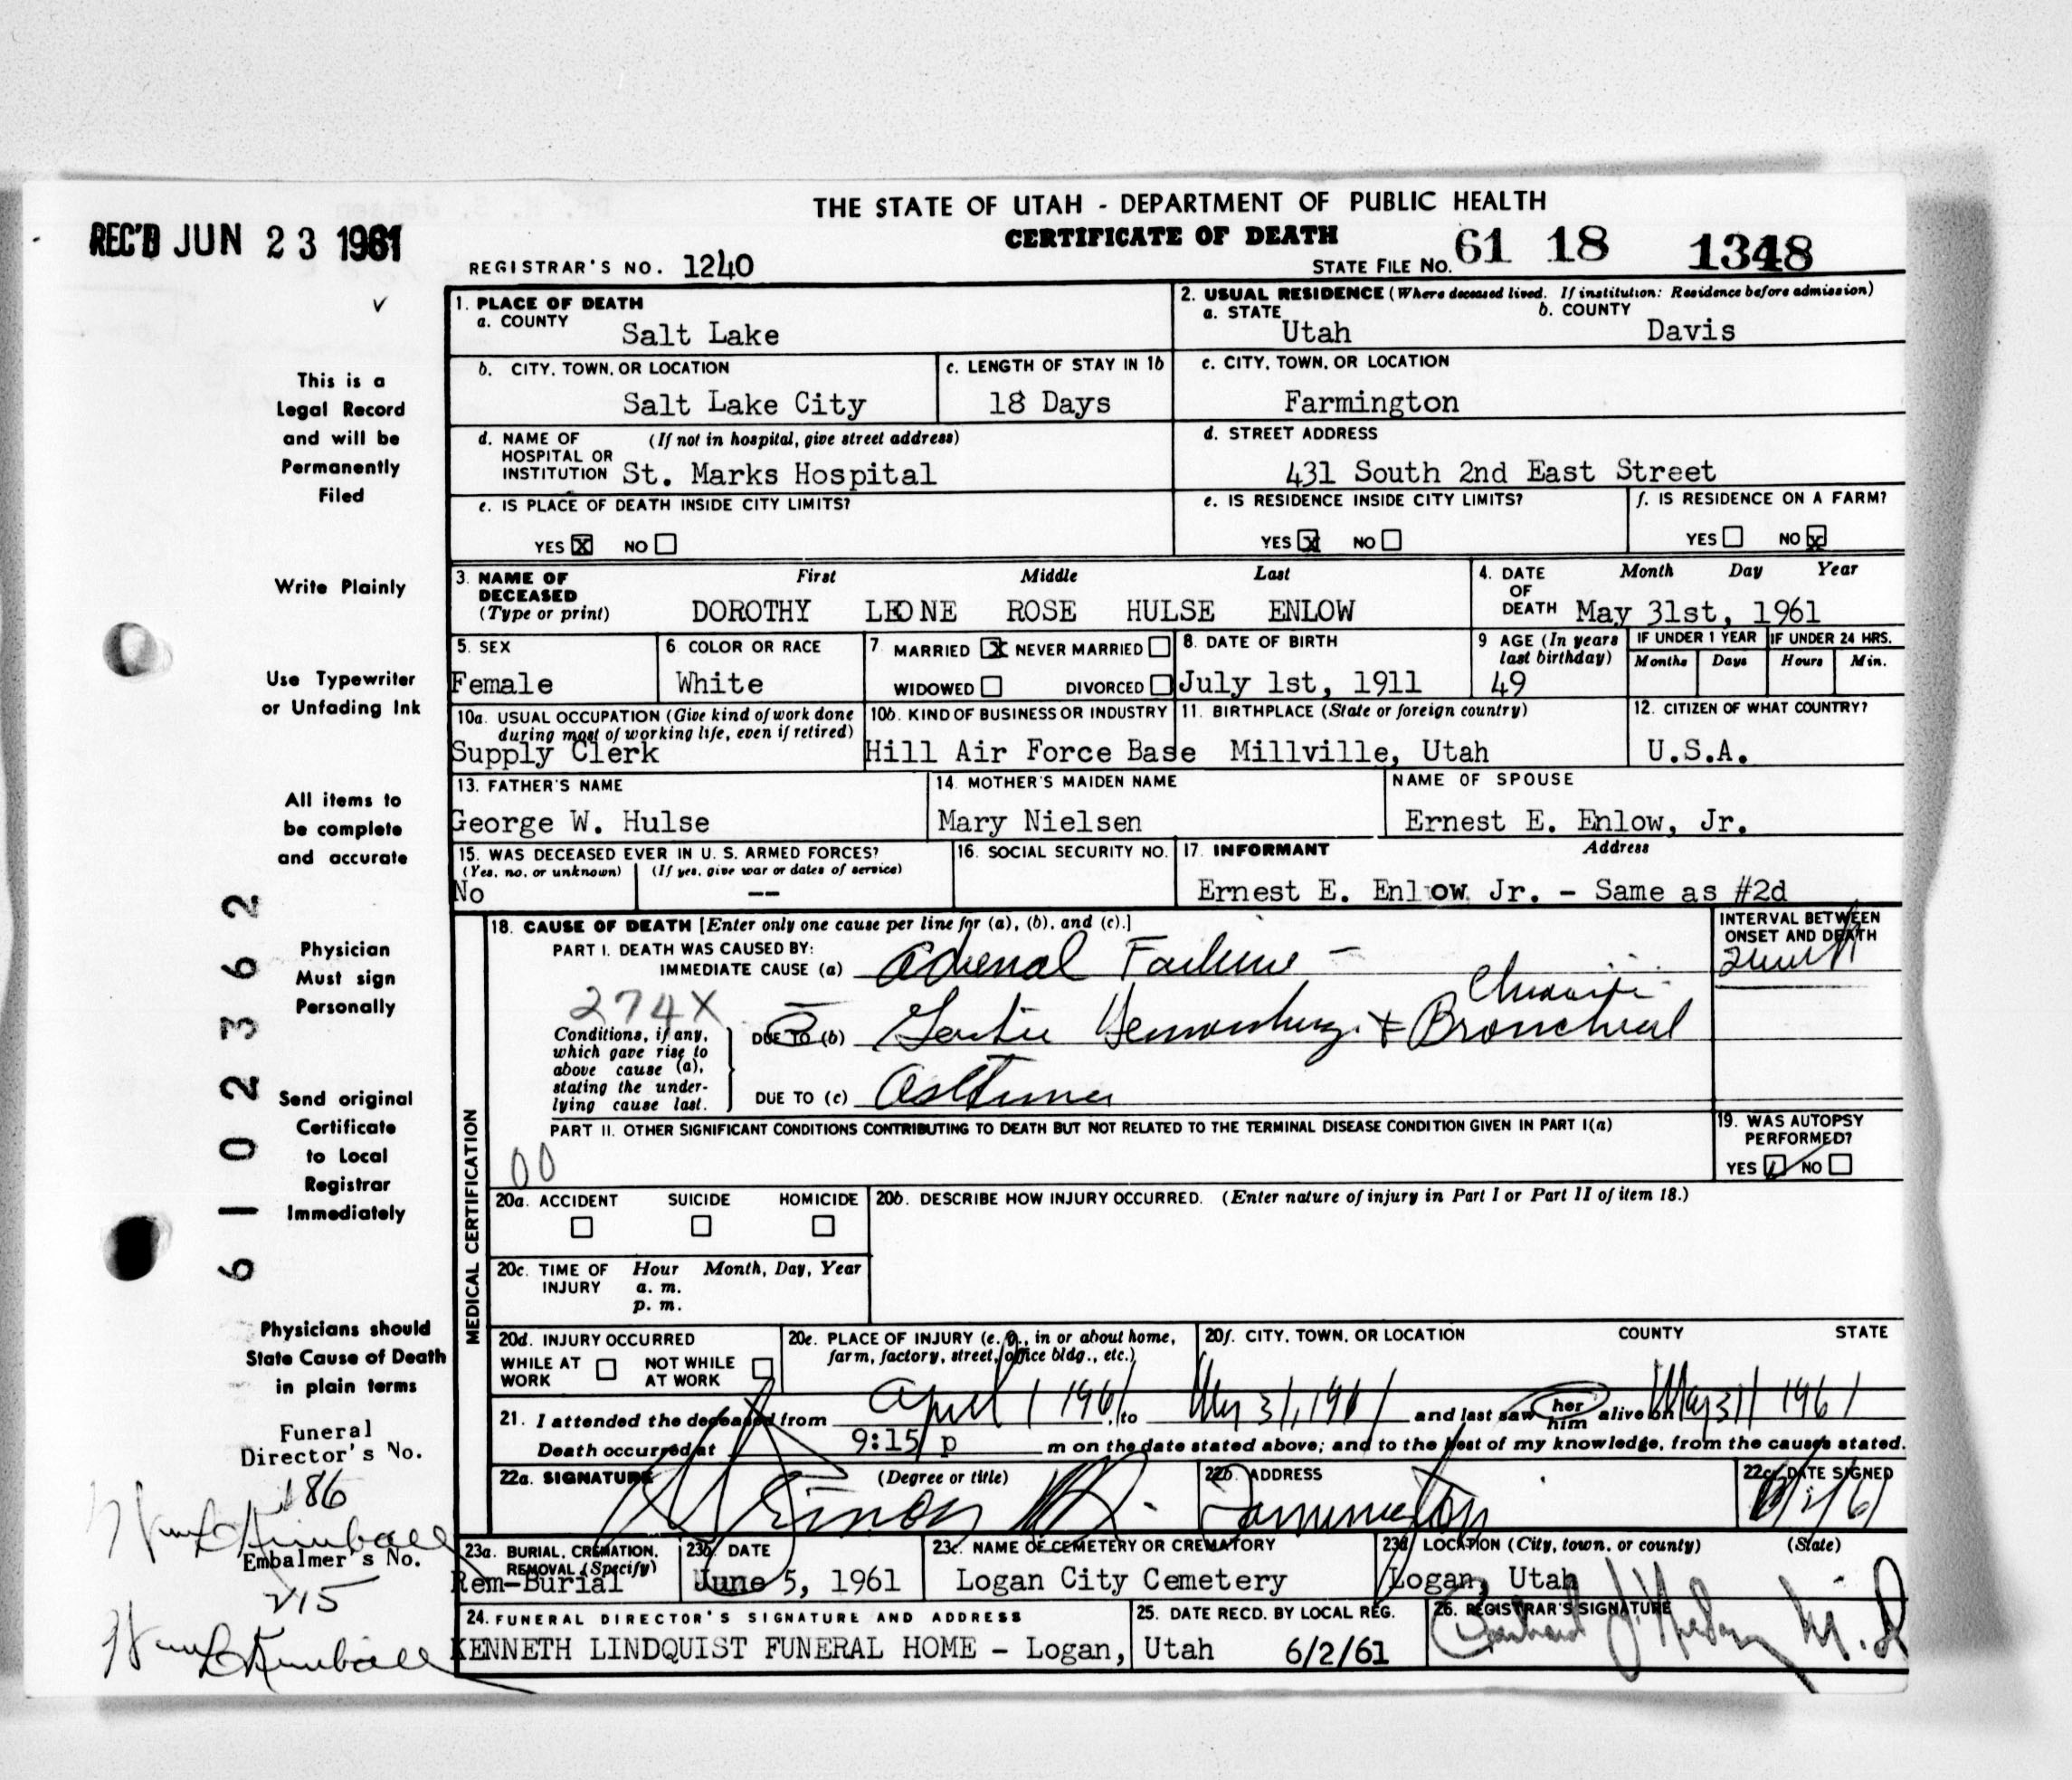 THE STATE OF UTAH - DEPARTMENT OF PUBLIC HEALTH
REC'D JUN 23 1961
CERTIFICATE OF DEATH
REGISTRAR'S NO. 1240
STATE FILE NO. 61 18 1348
1. PLACE OF DEATH
a. COUNTY Salt Lake
2. USUAL RESIDENCE (Where deceased lived. If institution: Residence before admission)
a. STATE Utah b. COUNTY Davis
b. CITY, TOWN, OR LOCATION Salt Lake City
c. LENGTH OF STAY IN 1b 18 Days
c. CITY, TOWN, OR LOCATION Farmington
d. NAME OF HOSPITAL OR INSTITUTION (If not in hospital, give street address) St. Marks Hospital
d. STREET ADDRESS 431 South 2nd East Street
e. IS PLACE OF DEATH INSIDE CITY LIMITS?
YES X NO
e. IS RESIDENCE INSIDE CITY LIMITS?
YES X NO
f. IS RESIDENCE ON A FARM?
YES NO X
3. NAME OF DECEASED (Type or print) First Middle Last
DOROTHY LEONE ROSE HULSE ENLOW
4. DATE OF DEATH Month Day Year
May 31st, 1961
5. SEX Female
6. COLOR OR RACE White
7 MARRIED X NEVER MARRIED
WIDOWED DIVORCED
8. DATE OF BIRTH July 1st, 1911
9 AGE (In years last birthday) 49
IF UNDER 1 YEAR Months Days
IF UNDER 24 HRS. Hours Min.
10a. USUAL OCCUPATION (Give kind of work done during most of working life, even if retired)
Supply Clerk
10b. KIND OF BUSINESS OR INDUSTRY
Hill Air Force Base
11. BIRTHPLACE (State or foreign country)
Millville, Utah
12. CITIZEN OF WHAT COUNTRY?
U.S.A.
13. FATHER'S NAME
George W. Hulse
14. MOTHER'S MAIDEN NAME
Mary Nielsen
NAME OF SPOUSE
Ernest E. Enlow, Jr.
15. WAS DECEASED EVER IN U. S. ARMED FORCES?
(Yes, no, or unknown) (If yes, give war or dates of service)
No --
16. SOCIAL SECURITY NO.
17. INFORMANT Address
Ernest E. Enlow Jr. - Same as #2d
MEDICAL CERTIFICATION
18. CAUSE OF DEATH [Enter only one cause per line for (a), (b), and (c).]
INTERVAL BETWEEN ONSET AND DEATH
PART I. DEATH WAS CAUSED BY:
IMMEDIATE CAUSE (a) Adrenal Failure -
274X
Conditions, if any, which gave rise to above cause (a), stating the underlying cause last.
DUE TO (b) Hemorrhage + Chronic Bronchial
DUE TO (c) Asthma
PART II. OTHER SIGNIFICANT CONDITIONS CONTRIBUTING TO DEATH BUT NOT RELATED TO THE TERMINAL DISEASE CONDITION GIVEN IN PART I(a)
00
19. WAS AUTOPSY PERFORMED?
YES NO
20a. ACCIDENT SUICIDE HOMICIDE
20b. DESCRIBE HOW INJURY OCCURRED. (Enter nature of injury in Part I or Part II of item 18.)
20c. TIME OF INJURY Hour Month, Day, Year
a. m.
p. m.
20d. INJURY OCCURRED
WHILE AT WORK NOT WHILE AT WORK
20e. PLACE OF INJURY (e. g., in or about home, farm, factory, street, office bldg., etc.)
20f. CITY, TOWN, OR LOCATION COUNTY STATE
21. I attended the deceased from April 1 1961, to May 31, 1961 and last saw her him alive on May 31 1961
Death occurred at 9:15 p m on the date stated above; and to the best of my knowledge, from the causes stated.
22a. SIGNATURE (Degree or title)
22b. ADDRESS
Farmington
22c. DATE SIGNED
23a. BURIAL, CREMATION, REMOVAL (Specify)
Rem-Burial
23b. DATE
June 5, 1961
23c. NAME OF CEMETERY OR CREMATORY
Logan City Cemetery
23d. LOCATION (City, town, or county) (State)
Logan, Utah
24. FUNERAL DIRECTOR'S SIGNATURE AND ADDRESS
KENNETH LINDQUIST FUNERAL HOME - Logan, Utah
25. DATE RECD. BY LOCAL REG.
6/2/61
26. REGISTRAR'S SIGNATURE
This is a
Legal Record
and will be
Permanently
Filed
Write Plainly
Use Typewriter
or Unfading Ink
All items to
be complete
and accurate
Physician
Must sign
Personally
Send original
Certificate
to Local
Registrar
Immediately
Physicians should
State Cause of Death
in plain terms
61023 62
Funeral
Director's No.
186
Kimball
Embalmer's No.
215
Kimball